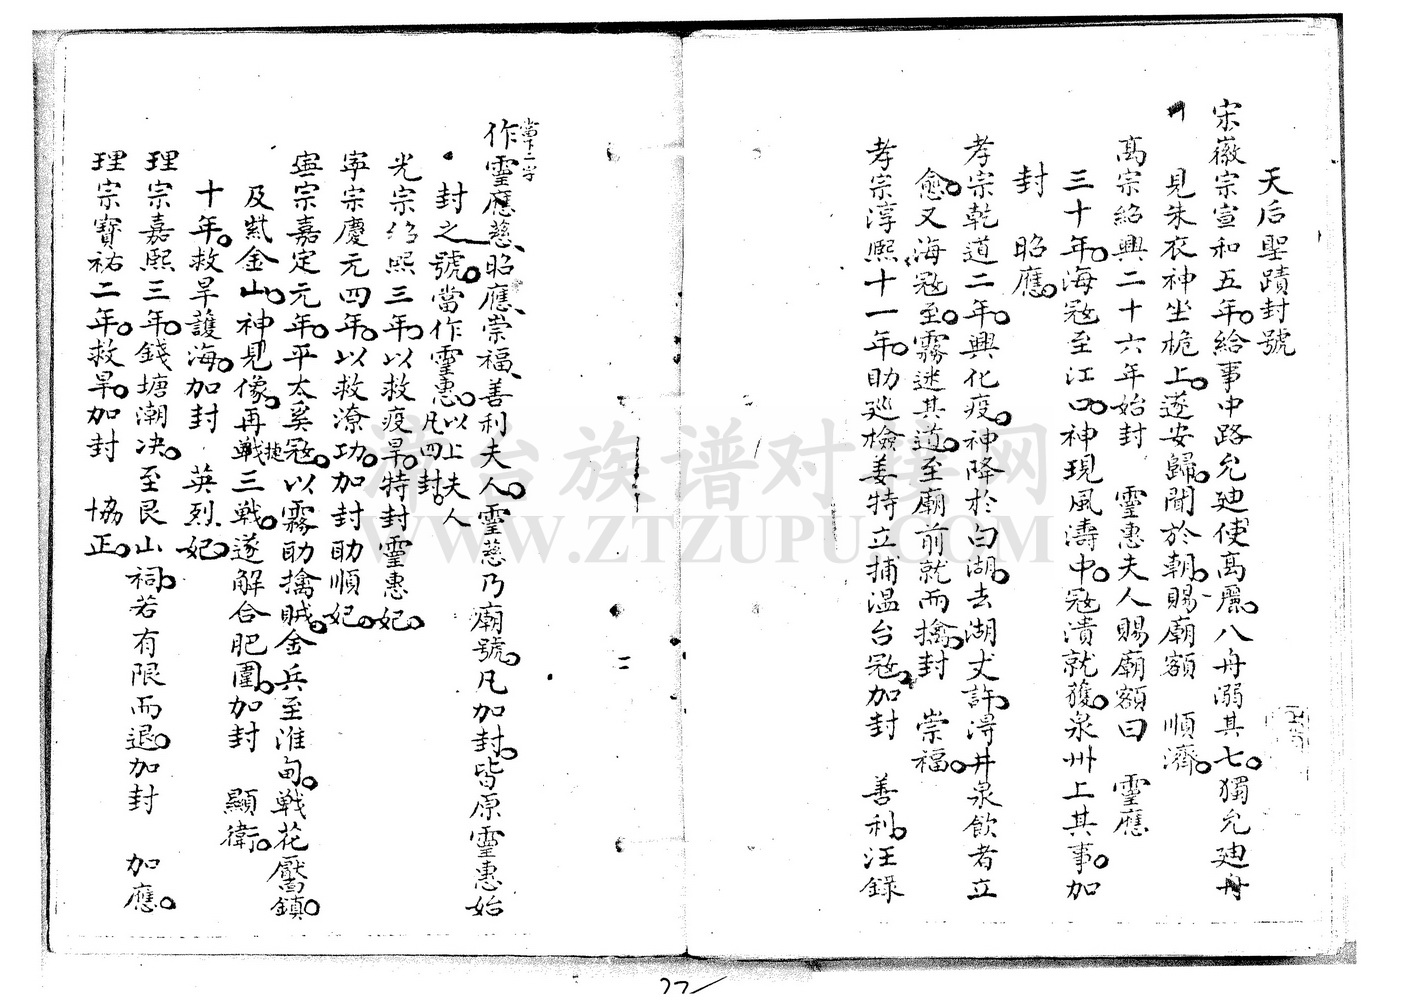 天后聖蹟封號
宋徽宗宣和五年。給事中路允廸使高麗。八舟溺其七。獨允廸舟
見朱衣神坐桅上。遂安歸。聞於朝。賜廟額　順濟。
高宗紹興二十六年始封　靈惠夫人賜廟額曰　靈應
三十年。海冦至江口。神現風濤中。冦潰就獲。泉州上其事。加
封　昭應。
孝宗乾道二年。興化疫。神降於白湖。去湖丈許。得井泉飲者立
愈。又海冦至。霧迷其道。至廟前就而擒。封　崇福。
孝宗淳熙十一年。助廵檢姜特立捕温台冦。加封　善利。汪錄
當下二字
作靈應慈、昭應、崇福、善利夫人。靈慈乃廟號。凡加封。皆原靈惠始
封之號。當作靈惠。以上夫人凡四封。
光宗紹熙三年。以救疫旱。特封靈惠妃。
寧宗慶元四年。以救潦功。加封助順妃。
寧宗嘉定元年。平太奚冦。以霧助擒賊。金兵至淮甸。戰花靨鎮。
及紫金山。神見像。再戰捷三戰。遂解合肥圍。加封　顯衛。
十年。救旱護海。加封　英烈妃。
理宗嘉熙三年。錢塘潮决。至艮山祠。若有限而退。加封　加應。
理宗寳祐二年。救旱。加封　協正。
莆台族谱对接网
WWW.ZTZUPU.COM
27